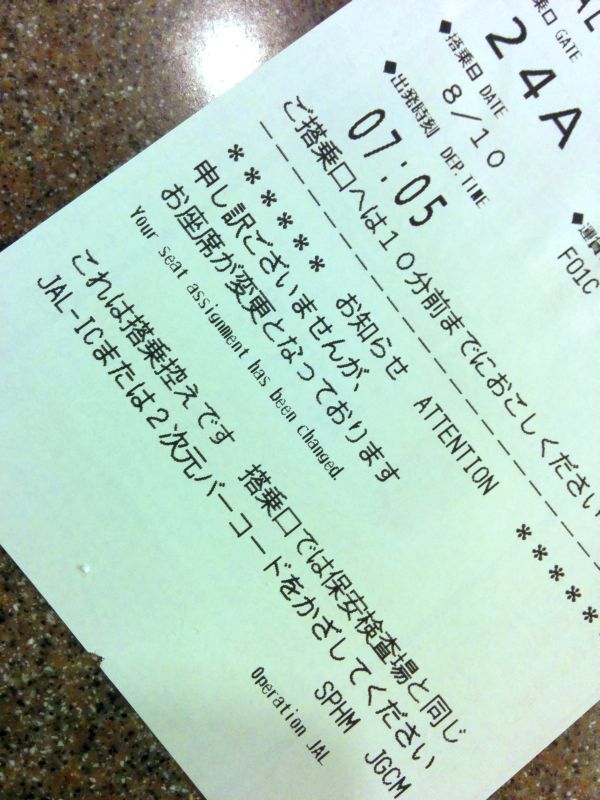 搭乗口 GATE
24A
◆搭乗日 DATE
8/10
◆出発時刻 DEP.TIME
07:05
F01C
ご搭乗口へは10分前までにおこしください
****** お知らせ ATTENTION ******
申し訳ございませんが、
お座席が変更となっております
Your seat assignment has been changed.
これは搭乗控えです 搭乗口では保安検査場と同じ
JAL-ICまたは2次元バーコードをかざしてください
SPHM JGCM
Operation JAL